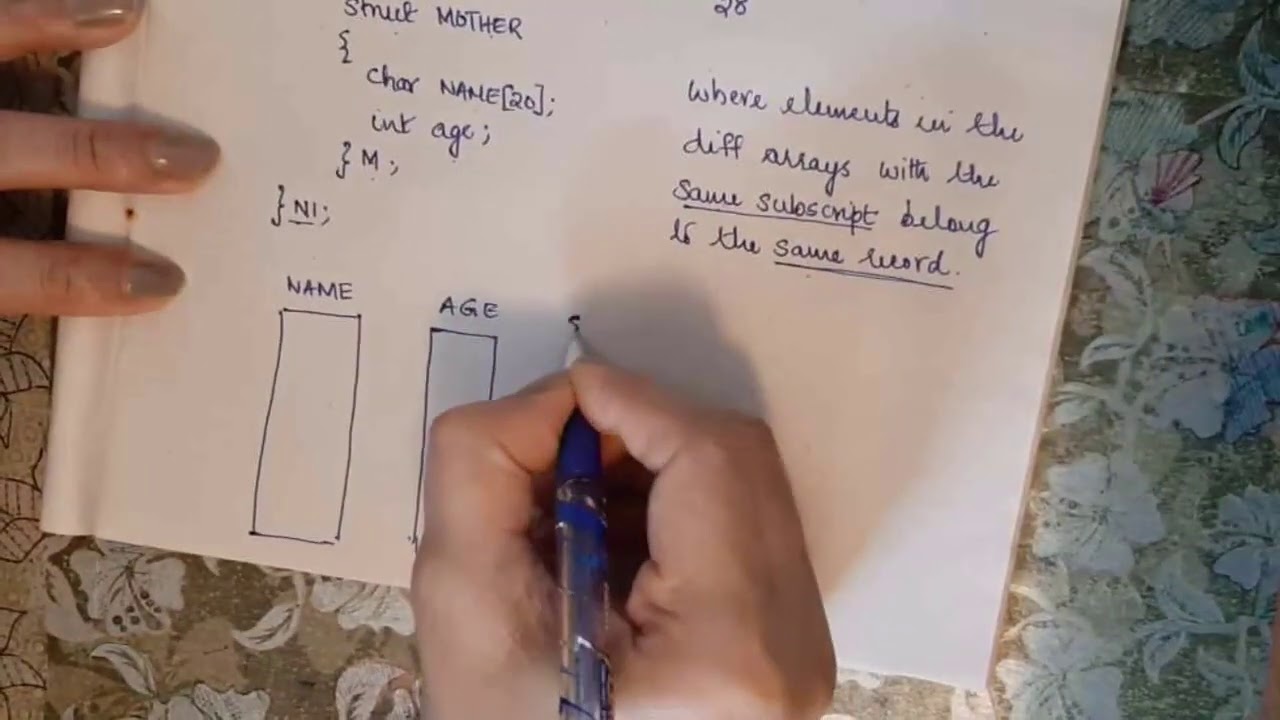 struct MOTHER
{
char NAME[20];
int age;
} M;
} N1;
28
where elements in the
diff arrays with the
same subscript belong
to the same record.
NAME
AGE
S